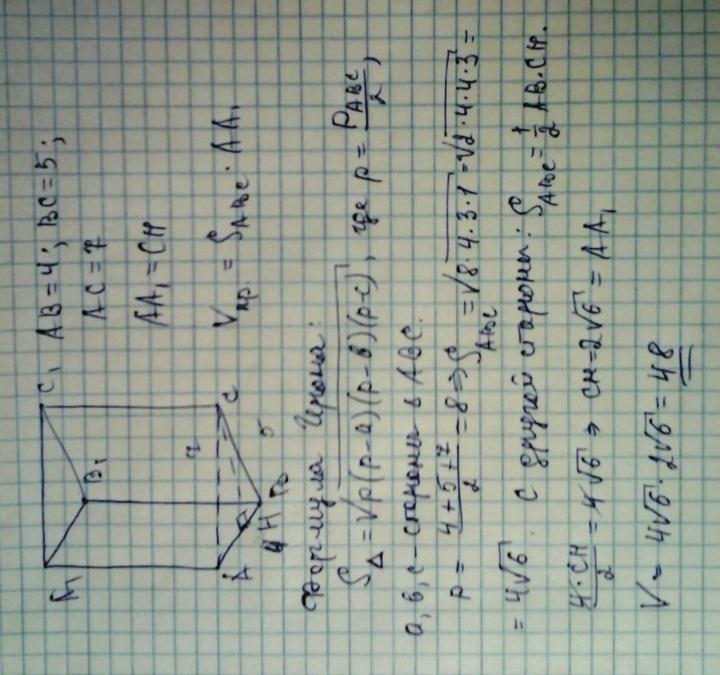 A₁ C₁ B₁ A C B H 7 5 4
AB = 4; BC = 5;
AC = 7
AA₁ = CH
Vпр. = S_ABC · AA₁
Формула Герона:
S_Δ = √p(p-a)(p-в)(p-c), где p = P_ABC/2,
a, в, c - стороны в ABC.
p = (4+5+7)/2 = 8 ⇒ S_ABC = √8·4·3·1 = √2·4·4·3 =
= 4√6. С другой стороны: S_ABC = 1/2 AB·CH.
4·CH/2 = 4√6 ⇒ CH = 2√6 = AA₁
V = 4√6 · 2√6 = 48